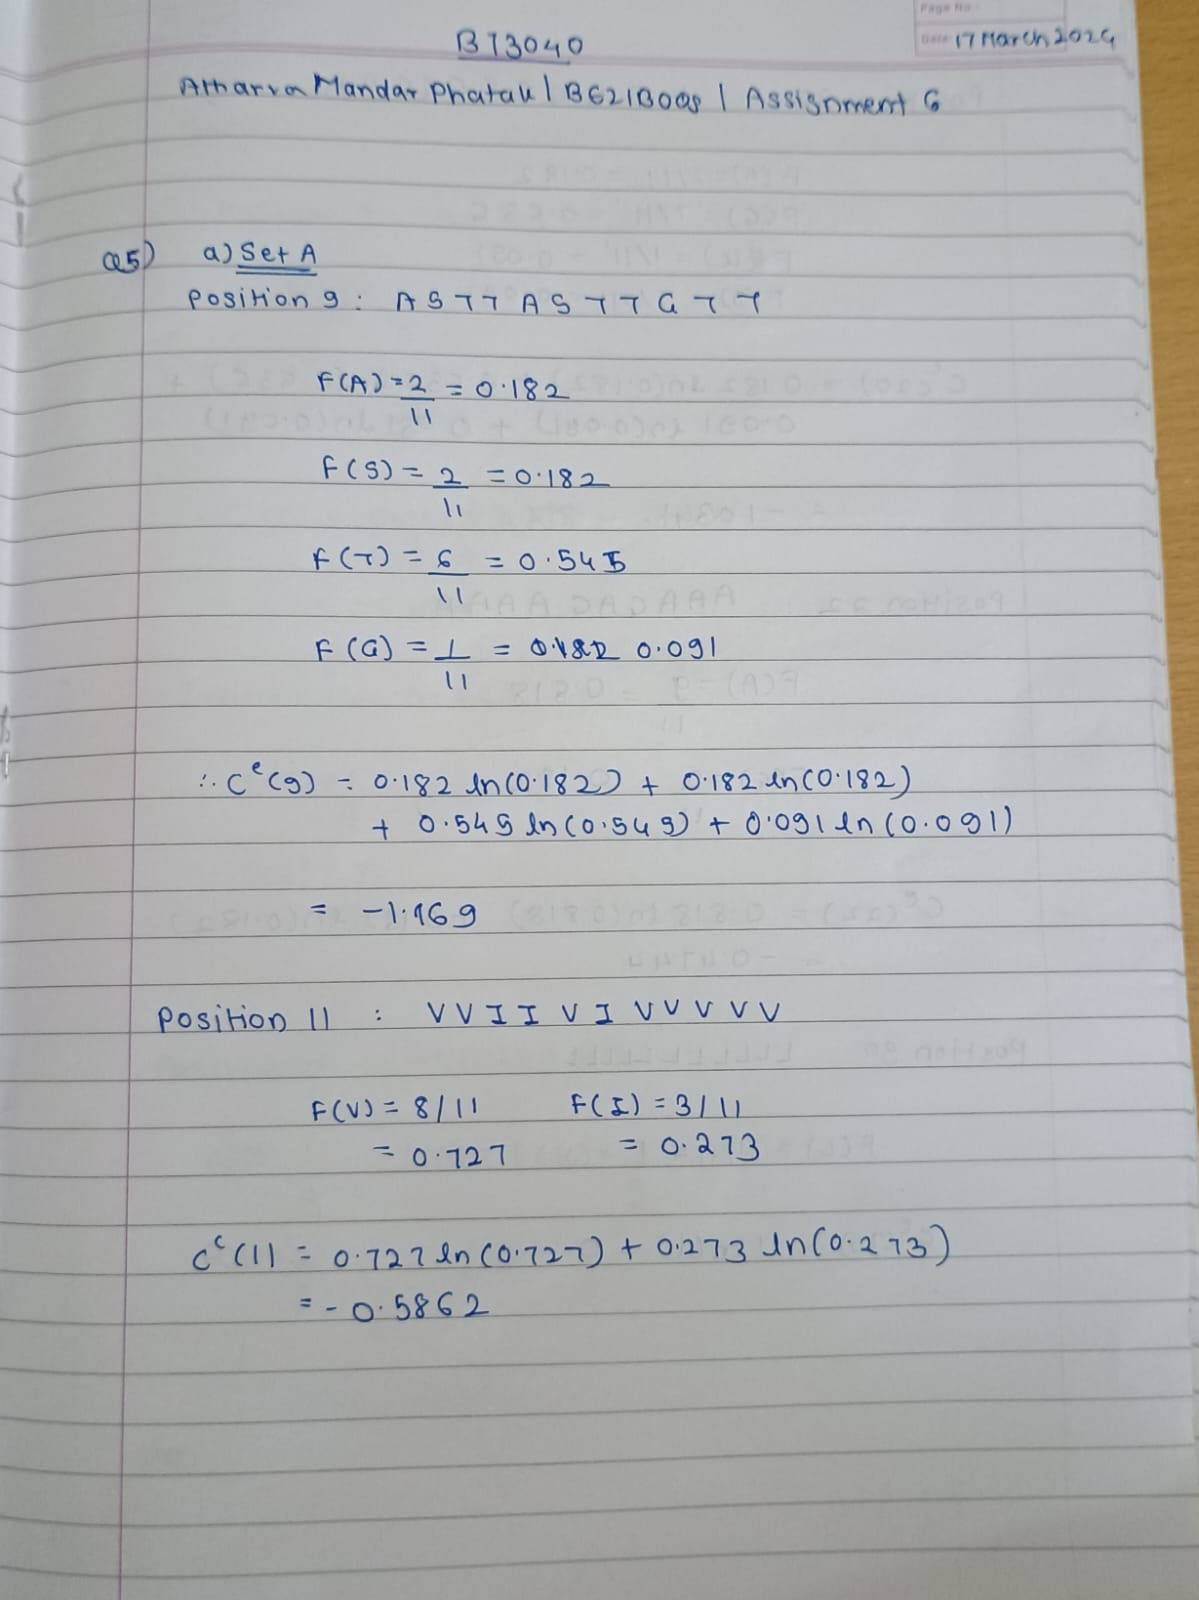 Page No
Date 17 March 2024
BT3040
Atharva Mandar Phatak | BE21B009 | Assignment 6
Q5) a) Set A
Position 9 : A S T T A S T T G T T
F(A) = 2/11 = 0.182
F(S) = 2/11 = 0.182
F(T) = 6/11 = 0.545
F(G) = 1/11 = 0.091
∴ Cᵉ(9) = 0.182 ln(0.182) + 0.182 ln(0.182)
+ 0.545 ln(0.545) + 0.091 ln(0.091)
= -1.169
Position 11 : V V I I V I V V V V V
F(V) = 8/11 F(I) = 3/11
= 0.727 = 0.273
Cᵉ(11) = 0.727 ln(0.727) + 0.273 ln(0.273)
= -0.5862